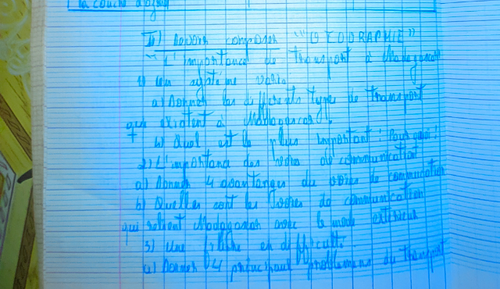 la couche d'ozone
II) Devoir composer "GEOGRAPHIE"
"L'importance de Transport à Madagascar
1) Un système varié
a) Donner les différents types de transport
que existent à Madagascar.
b) Quel est le plus important ? Pourquoi ?
2) L'importance des voies de communication
a) Donner 4 avantages du voies de communication
b) Quelles sont les voies de communication
qui relient Madagascar avec le monde extérieur
3) Une filière en difficulté
a) Donner 4 principaux problèmes du transport